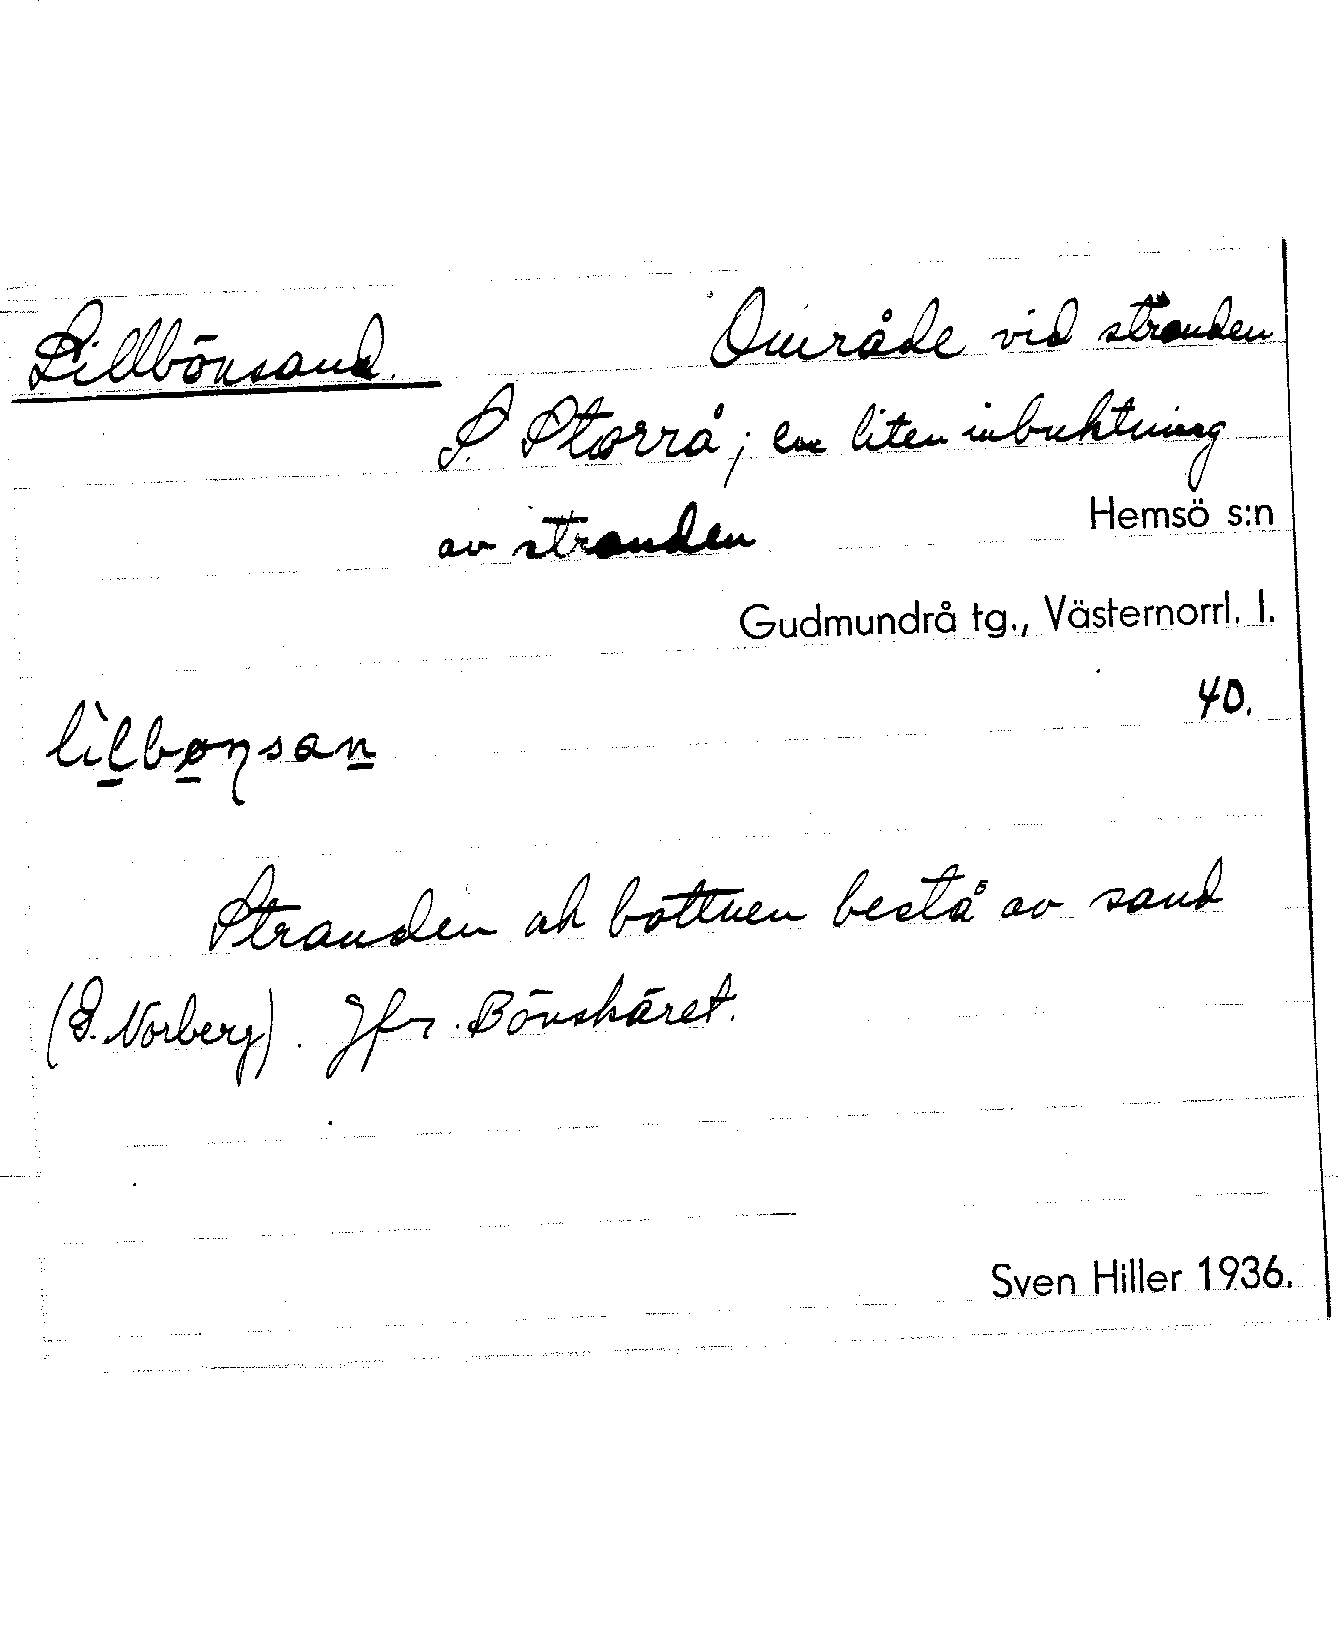 Lillbönsand. Område vid stranden
S. Storrå; en liten inbuktning
av stranden Hemsö s:n
Gudmundrå tg., Västernorrl. l.
40.
lìlbønsan
Stranden och bottnen bestå av sand
(E. Norberg). Jfr. Bönskäret.
Sven Hiller 1936.